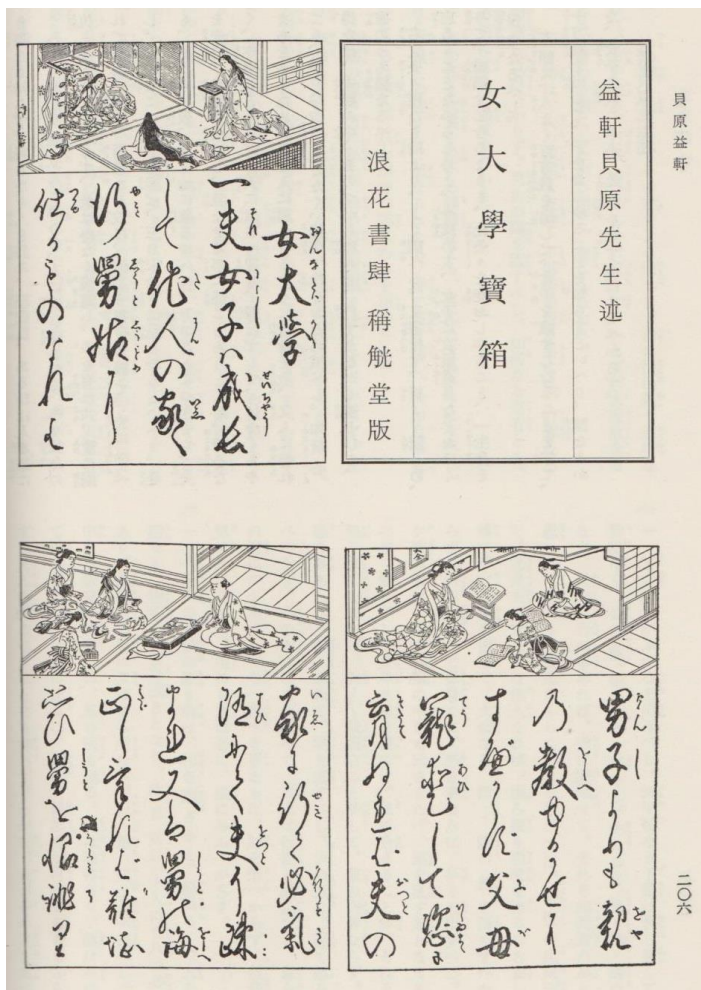 貝原益軒
益軒貝原先生述
女大學寶箱
浪花書肆 稱觥堂版
女大學
一夫女子ハ成長
して他人の家へ
行舅姑に
仕るものなれば
男子よりも親
乃教ゆるかせに
すべからず父母
寵愛して恣に
育ぬれば夫の
家に行て必氣
随にて夫に疎
まれ又は舅の誨
正しければ難堪
思ひ舅を恨誹り
二〇六